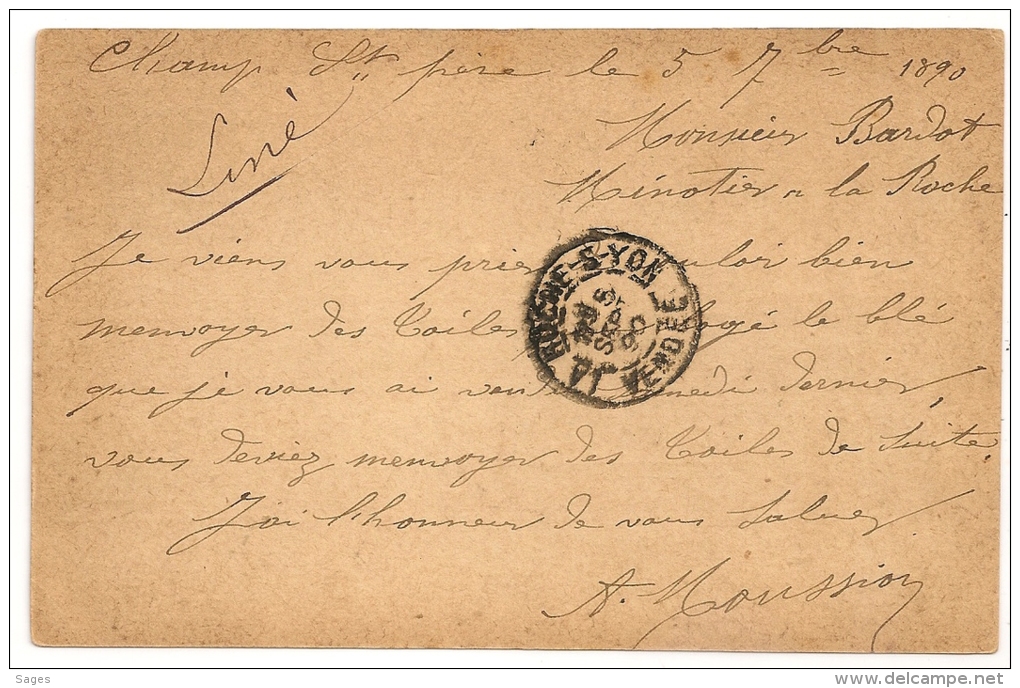 Champ St père le 5 7bre 1890
Livré
Monsieur Bardot
Minotier a la Roche
Je viens vous prier vouloir bien
menvoyer des Toiles logé le blé
que je vous ai vendu samedi dernier,
vous deviez menvoyer des Toiles de Suite.
J'ai l'honneur de vous Saluer
A. Moussion
LA ROCHE-S-YON
5
SEPT
90
VENDÉE
Sages
delcampe.net